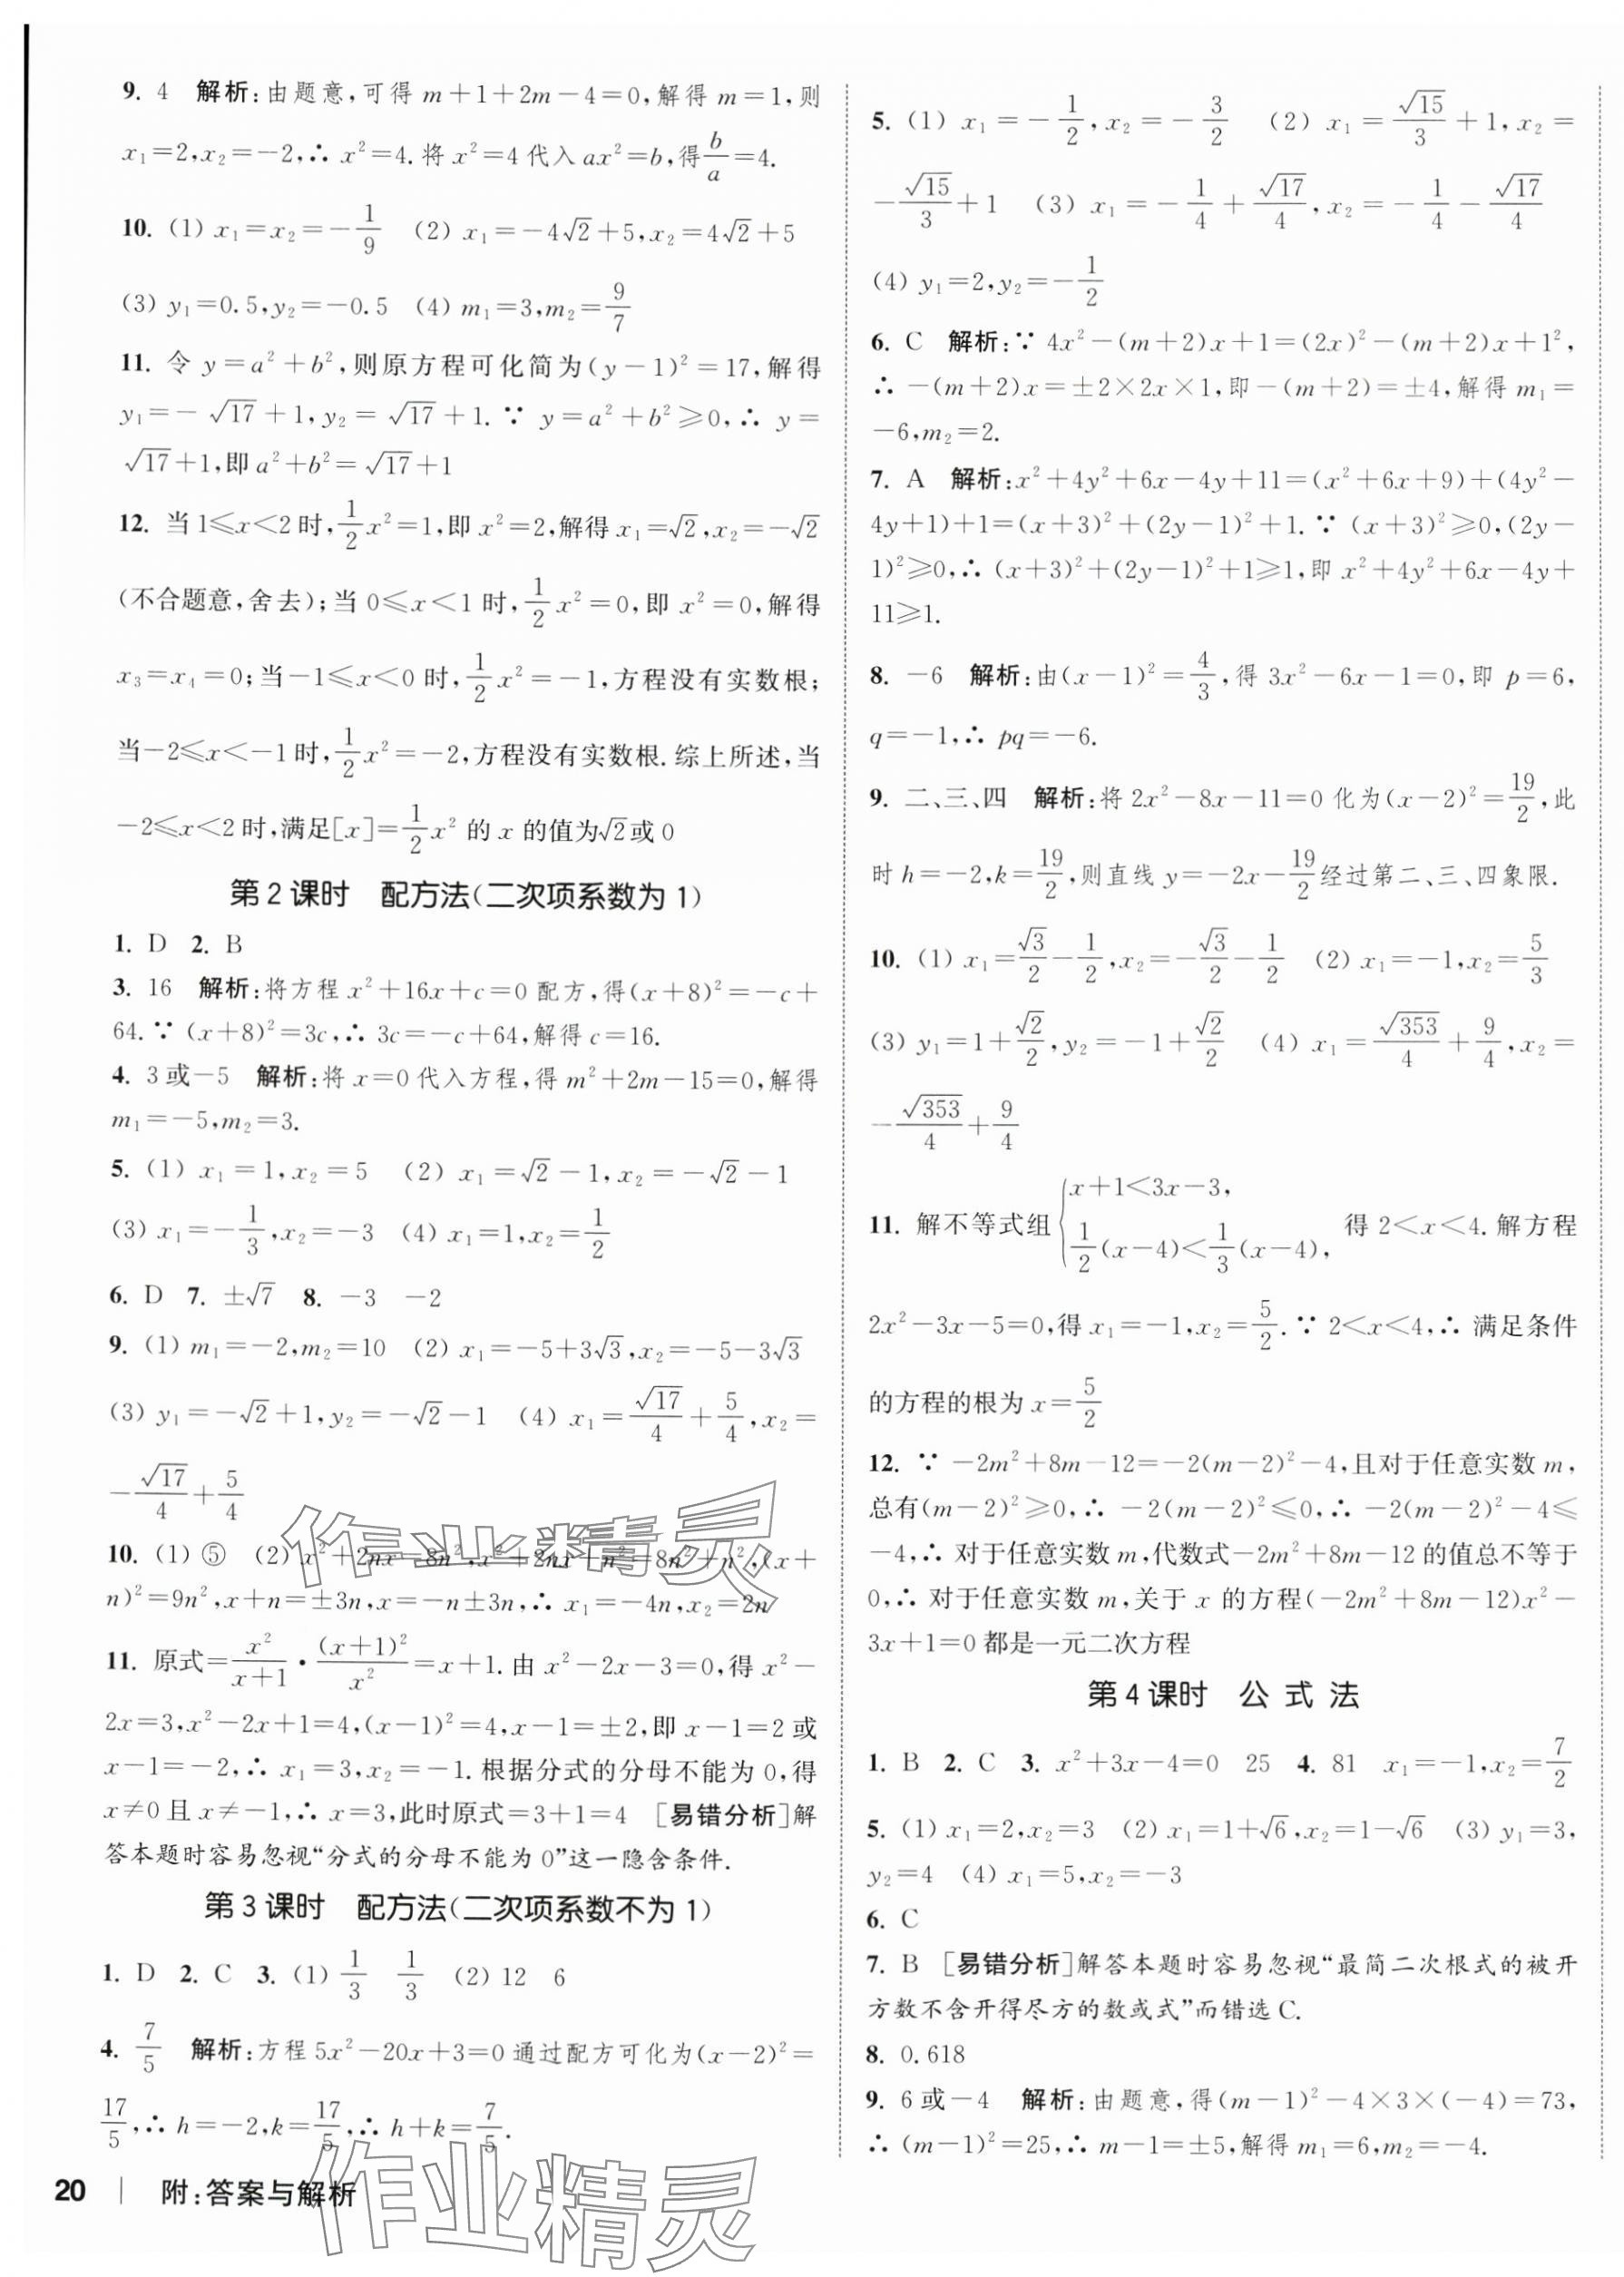 9. 4 解析:由题意,可得 m+1+2m-4=0,解得 m=1,则
x₁=2,x₂=-2,∴ x²=4. 将 x²=4 代入 ax²=b,得 b/a=4.
10. (1) x₁=x₂=-1/9 (2) x₁=-4√2+5,x₂=4√2+5
(3) y₁=0.5,y₂=-0.5 (4) m₁=3,m₂=9/7
11. 令 y=a²+b²,则原方程可化简为(y-1)²=17,解得
y₁=-√17+1,y₂=√17+1. ∵ y=a²+b²≥0,∴ y=
√17+1,即 a²+b²=√17+1
12. 当 1≤x<2 时,1/2 x²=1,即 x²=2,解得 x₁=√2,x₂=-√2
(不合题意,舍去);当 0≤x<1 时,1/2 x²=0,即 x²=0,解得
x₃=x₄=0;当-1≤x<0 时,1/2 x²=-1,方程没有实数根;
当-2≤x<-1 时,1/2 x²=-2,方程没有实数根. 综上所述,当
-2≤x<2 时,满足[x]=1/2 x² 的 x 的值为√2或 0
第 2 课时 配方法(二次项系数为 1)
1. D 2. B
3. 16 解析:将方程 x²+16x+c=0 配方,得(x+8)²=-c+
64. ∵ (x+8)²=3c,∴ 3c=-c+64,解得 c=16.
4. 3 或-5 解析:将 x=0 代入方程,得 m²+2m-15=0,解得
m₁=-5,m₂=3.
5. (1) x₁=1,x₂=5 (2) x₁=√2-1,x₂=-√2-1
(3) x₁=-1/3,x₂=-3 (4) x₁=1,x₂=1/2
6. D 7. ±√7 8. -3 -2
9. (1) m₁=-2,m₂=10 (2) x₁=-5+3√3,x₂=-5-3√3
(3) y₁=-√2+1,y₂=-√2-1 (4) x₁=√17/4+5/4,x₂=
-√17/4+5/4
10. (1) ⑤ (2) x²+2nx=8n²,x²+2nx+n²=8n²+n²,(x+
n)²=9n²,x+n=±3n,x=-n±3n,∴ x₁=-4n,x₂=2n
11. 原式=x²/(x+1)·(x+1)²/x²=x+1. 由 x²-2x-3=0,得 x²-
2x=3,x²-2x+1=4,(x-1)²=4,x-1=±2,即 x-1=2 或
x-1=-2,∴ x₁=3,x₂=-1. 根据分式的分母不能为 0,得
x≠0 且 x≠-1,∴ x=3,此时原式=3+1=4 [易错分析]解
答本题时容易忽视“分式的分母不能为 0”这一隐含条件.
第 3 课时 配方法(二次项系数不为 1)
1. D 2. C 3. (1) 1/3 1/3 (2) 12 6
4. 7/5 解析:方程 5x²-20x+3=0 通过配方可化为(x-2)²=
17/5,∴ h=-2,k=17/5,∴ h+k=7/5.
20 | 附:答案与解析
5. (1) x₁=-1/2,x₂=-3/2 (2) x₁=√15/3+1,x₂=
-√15/3+1 (3) x₁=-1/4+√17/4,x₂=-1/4-√17/4
(4) y₁=2,y₂=-1/2
6. C 解析:∵ 4x²-(m+2)x+1=(2x)²-(m+2)x+1²,
∴ -(m+2)x=±2×2x×1,即-(m+2)=±4,解得 m₁=
-6,m₂=2.
7. A 解析:x²+4y²+6x-4y+11=(x²+6x+9)+(4y²-
4y+1)+1=(x+3)²+(2y-1)²+1. ∵ (x+3)²≥0,(2y-
1)²≥0,∴ (x+3)²+(2y-1)²+1≥1,即 x²+4y²+6x-4y+
11≥1.
8. -6 解析:由(x-1)²=4/3,得 3x²-6x-1=0,即 p=6,
q=-1,∴ pq=-6.
9. 二、三、四 解析:将 2x²-8x-11=0 化为(x-2)²=19/2,此
时 h=-2,k=19/2,则直线 y=-2x-19/2经过第二、三、四象限.
10. (1) x₁=√3/2-1/2,x₂=-√3/2-1/2 (2) x₁=-1,x₂=5/3
(3) y₁=1+√2/2,y₂=-1+√2/2 (4) x₁=√353/4+9/4,x₂=
-√353/4+9/4
11. 解不等式组{x+1<3x-3, 1/2(x-4)<1/3(x-4), 得 2<x<4. 解方程
2x²-3x-5=0,得 x₁=-1,x₂=5/2. ∵ 2<x<4,∴ 满足条件
的方程的根为 x=5/2
12. ∵ -2m²+8m-12=-2(m-2)²-4,且对于任意实数 m,
总有(m-2)²≥0,∴ -2(m-2)²≤0,∴ -2(m-2)²-4≤
-4,∴ 对于任意实数 m,代数式-2m²+8m-12 的值总不等于
0,∴ 对于任意实数 m,关于 x 的方程(-2m²+8m-12)x²-
3x+1=0 都是一元二次方程
第 4 课时 公 式 法
1. B 2. C 3. x²+3x-4=0 25 4. 81 x₁=-1,x₂=7/2
5. (1) x₁=2,x₂=3 (2) x₁=1+√6,x₂=1-√6 (3) y₁=3,
y₂=4 (4) x₁=5,x₂=-3
6. C
7. B [易错分析]解答本题时容易忽视“最简二次根式的被开
方数不含开得尽方的数或式”而错选 C.
8. 0.618
9. 6 或-4 解析:由题意,得(m-1)²-4×3×(-4)=73,
∴ (m-1)²=25,∴ m-1=±5,解得 m₁=6,m₂=-4.
作业精灵
作业精灵